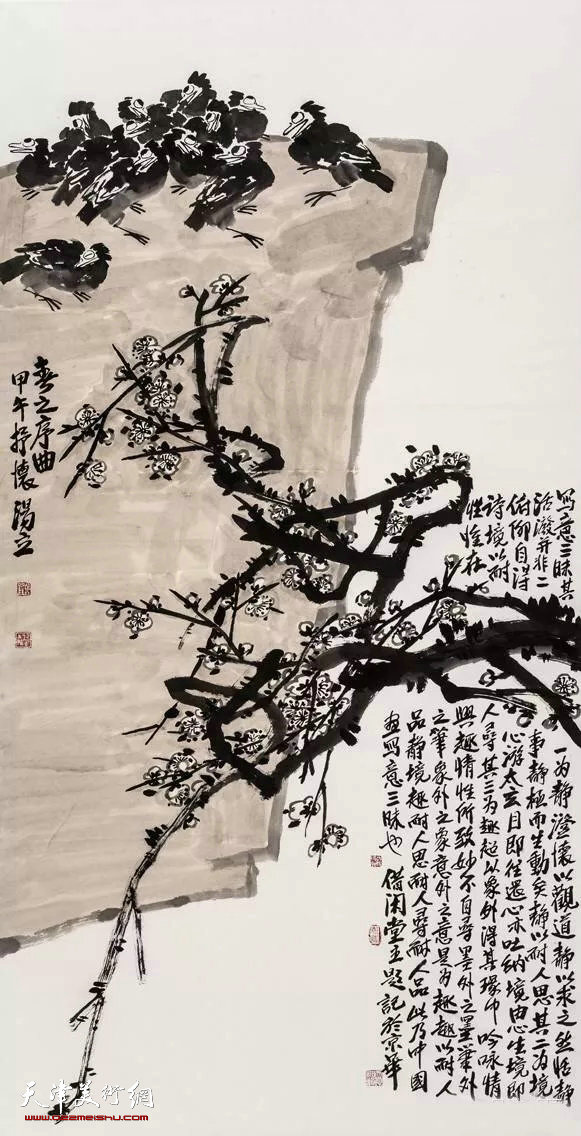 春之序曲
甲午抒懷 湯立
寫意三昧其
活潑並非二
俯仰自得
詩境以耐
性悟在也
一为静澄懷以觀道静以求之然恬静
事静極而生動矣静以耐人思其二为境
心游太玄目即往還心亦吐纳境由心生境即
人尋其三为趣超以象外得其環中 吟咏情
興趣情性所致妙不自尋墨外之墨筆外
之筆象外之象意外之意是为趣趣以耐人
品静境趣耐人思耐人尋耐人品此乃中國
画寫意三昧也 借闲堂主題記於京華
天津美術網
www.gezmeishu.com